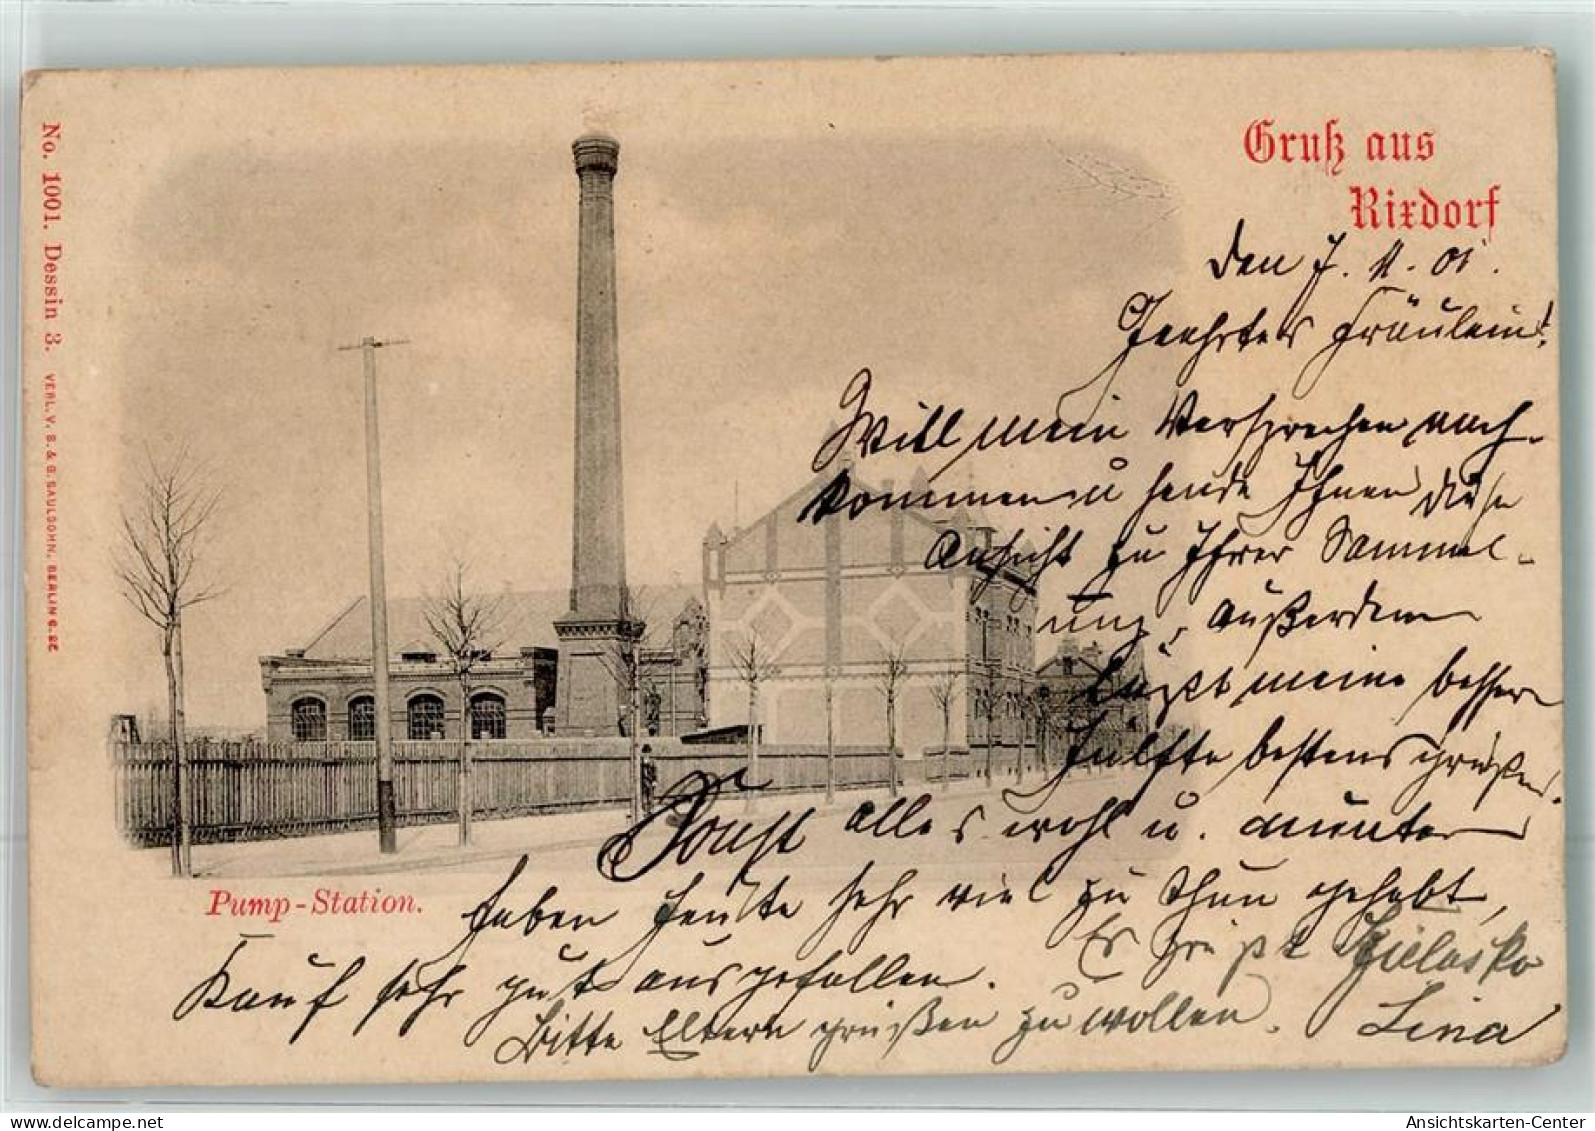 No. 1001. Dessin 3. VERL. V. S. & G. SAULSOHN, BERLIN C. 2C
Gruß aus
Rixdorf
den 7. 11. 01.
Geehrtes Fräulein!
Will mein Versprechen nach-
kommen u heude Ihnen diese
Ansicht zu Ihrer Sammel-
ung, außerdem
läßt meine bessere
Hälfte bestens grüßen.
Sonst alles wohl u. munter
haben heute sehr viel zu thun gehabt,
Kauf sehr gut ausgefallen.
Es grüßt
Bitte Eltern grüßen zu wollen. Lina
Pump-Station.
delcampe.net
AnsichtskartenCenter